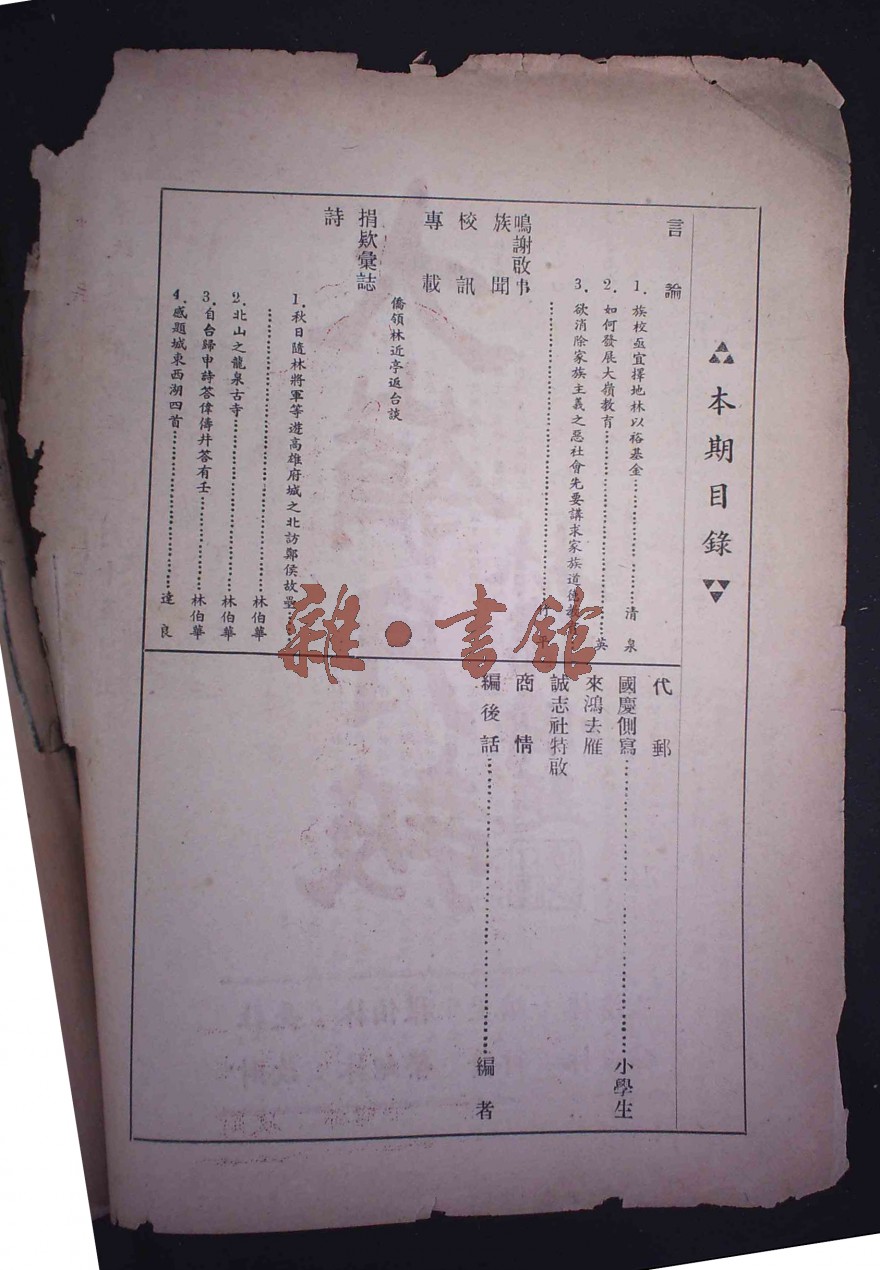 本期目錄
言論
1. 族校亟宜擇地林以裕基金………………清泉
2. 如何發展大嶺教育………………英
3. 欲消除家族主義之惡社會先要講求家族道德
鳴謝啟事
族聞
校訊
專載
僑領林近亭返台談
捐欵彙誌
詩
1. 秋日隨林將軍等遊高雄府城之北訪鄭侯故壘……
………………林伯華
2. 北山之龍泉古寺………………林伯華
3. 自台歸申詩答偉儔幷答有壬………………林伯華
4. 感題城東西湖四首………………達良
代郵
國慶側寫………………小學生
來鴻去雁
誠志社特啟
商情
編後話………………編者
雜·書館